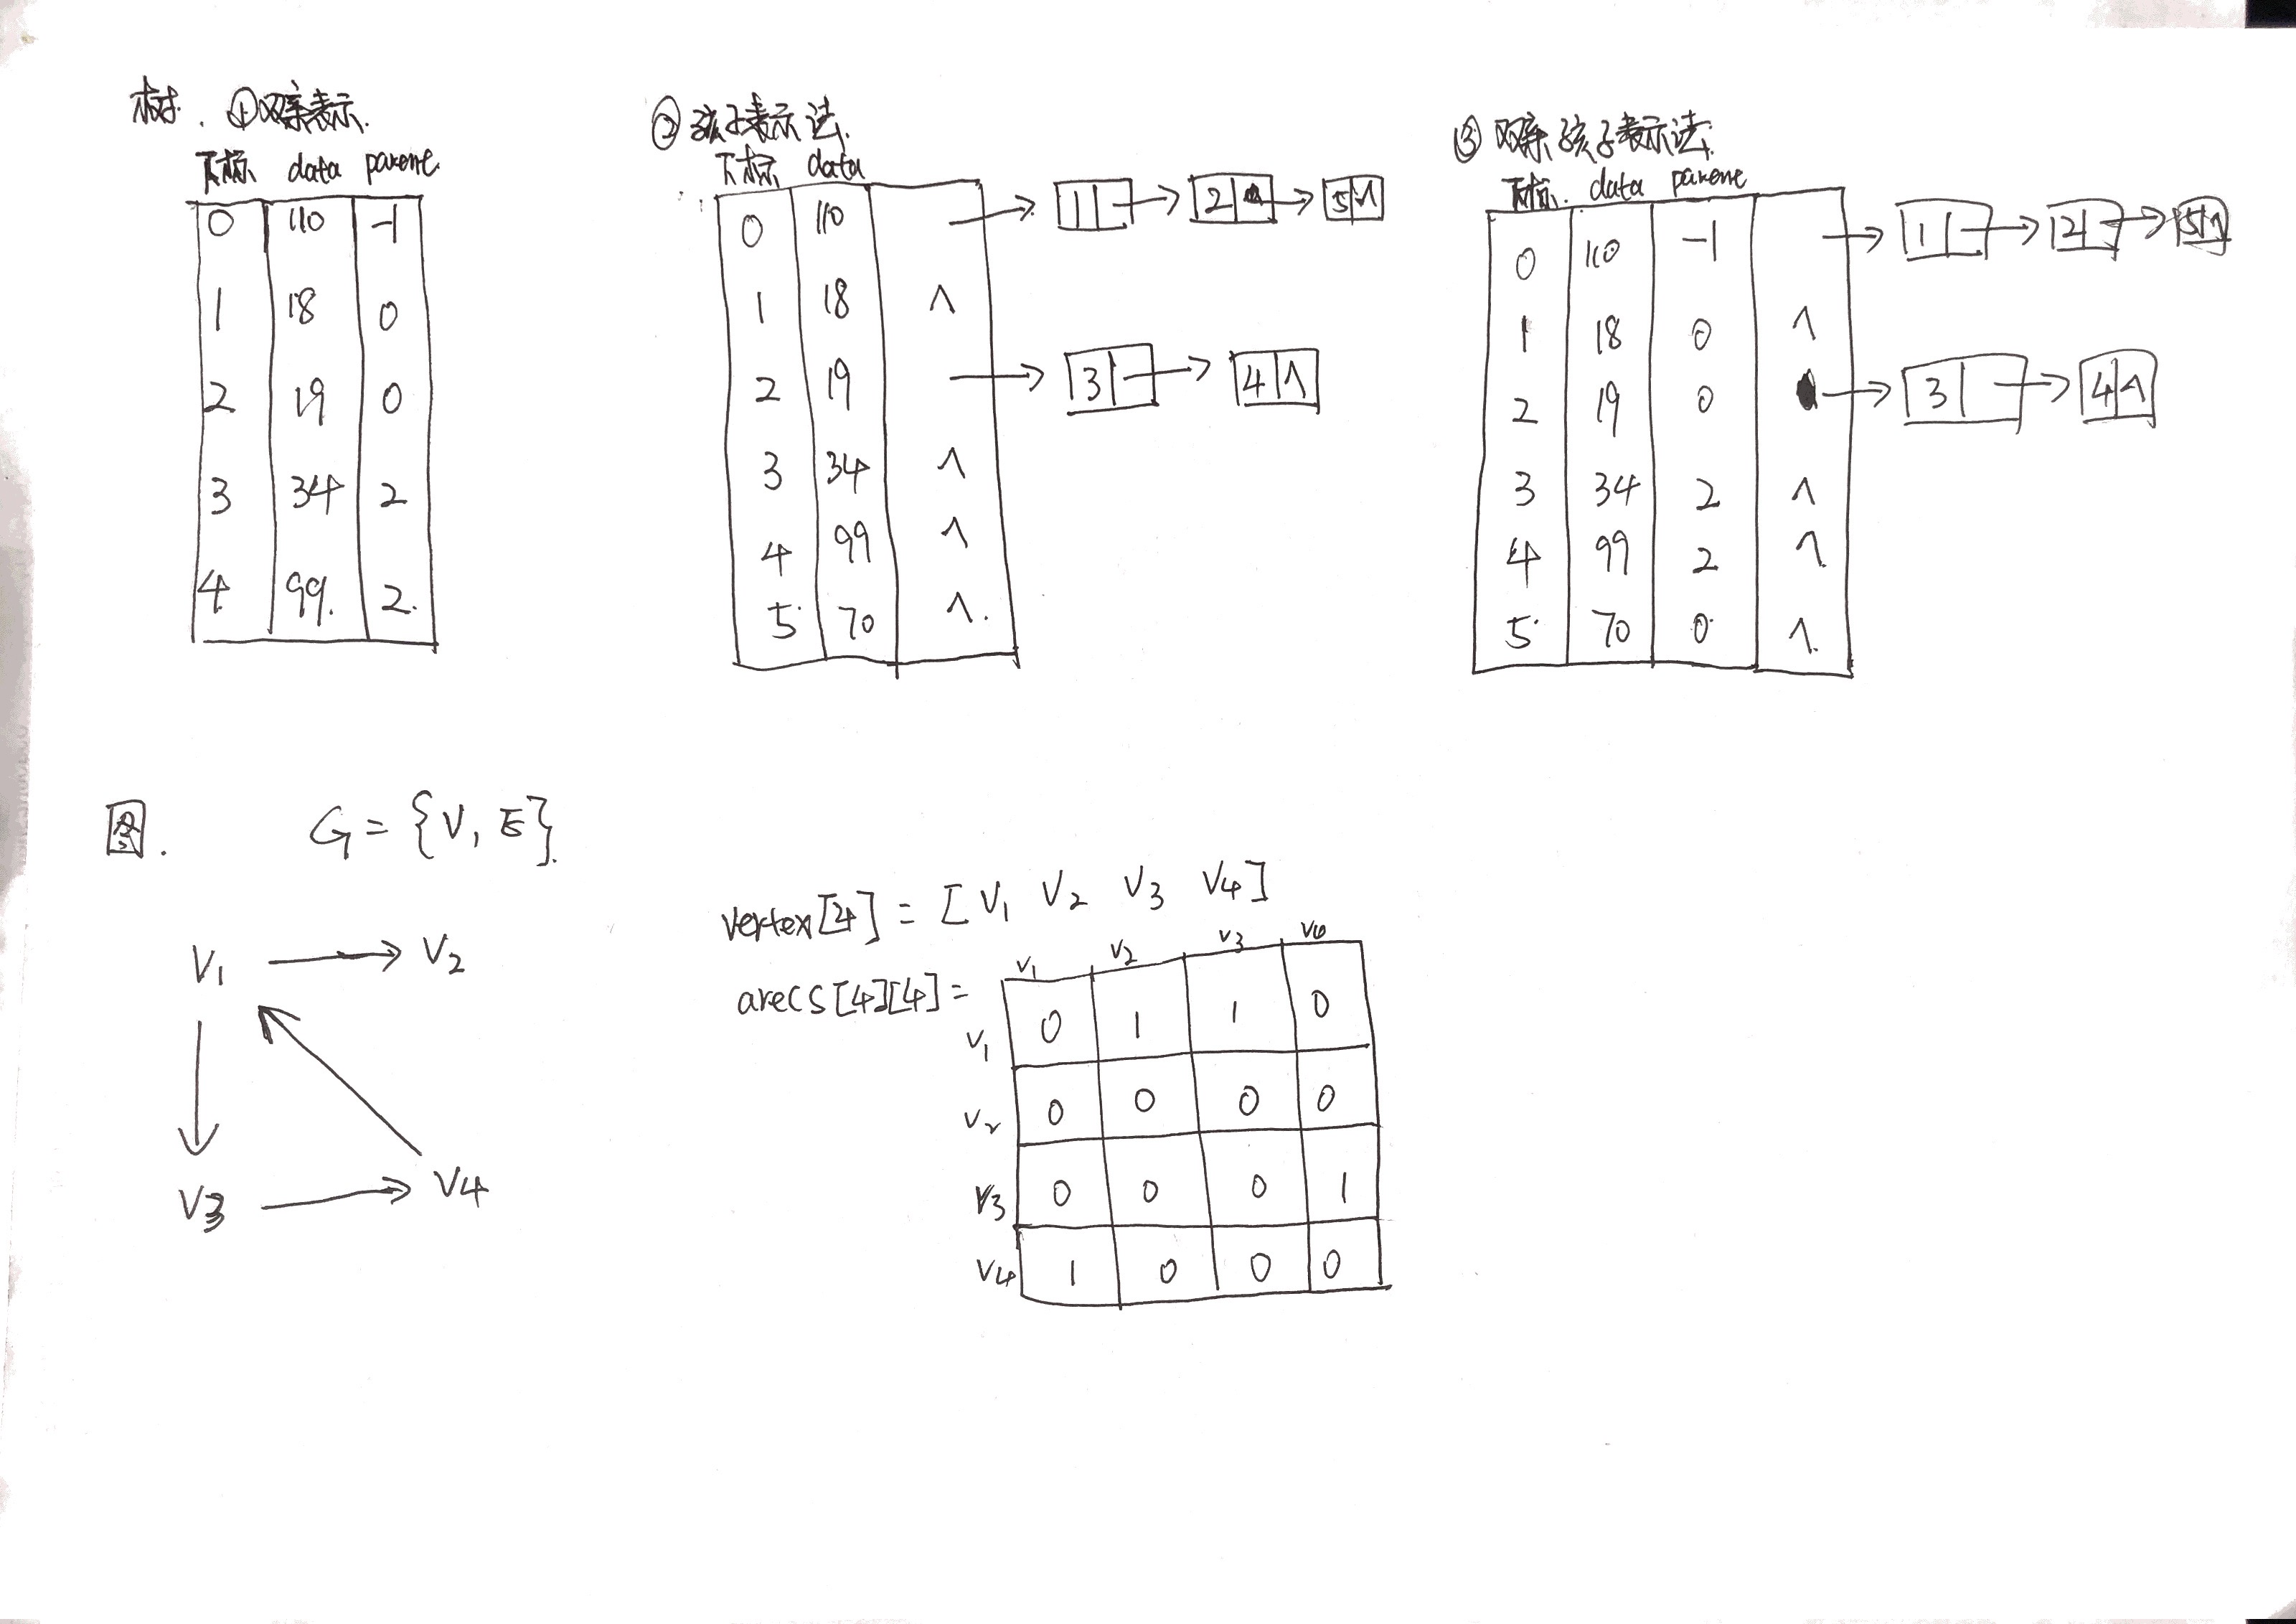 树. ①双亲表示.
下标 data parent.
0 110 -1
1 18 0
2 19 0
3 34 2
4 99. 2.
②孩子表示法.
下标 data
0 110 → 1 → 2 → 5 ∧
1 18 ∧
2 19 → 3 → 4 ∧
3 34 ∧
4 99 ∧
5 70 ∧.
③双亲孩子表示法.
下标. data parent
0 110 -1 → 1 → 2 → 5 ∧
1 18 0 ∧
2 19 0 → 3 → 4 ∧
3 34 2 ∧
4 99 2 ∧.
5 70 0 ∧.
图. G = {V, E}.
V1 → V2
V3 → V4
vertex[4] = [V1 V2 V3 V4]
arecs[4][4] =
V1 V2 V3
V1 0 1 1 0
V2 0 0 0 0
V3 0 0 0 1
V4 1 0 0 0